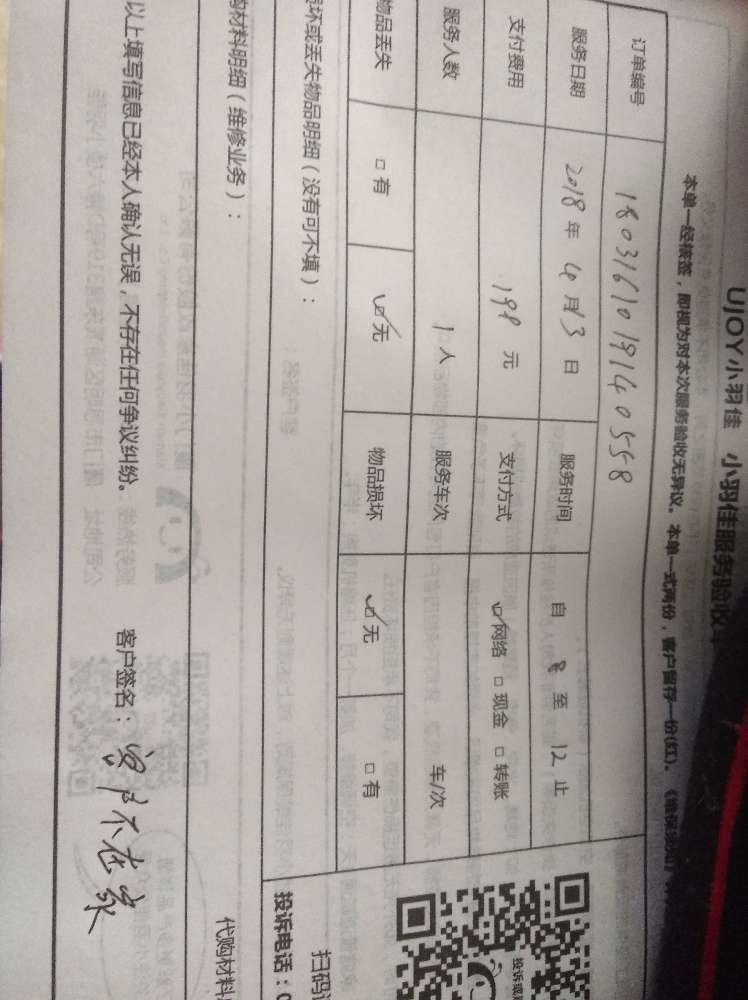 UJOY小羽佳 小羽佳服务验收
本单一经核签，即视为对本次服务验收无异议。本单一式两份，客户留存一份(红)。
订单编号 180316101914 0558
服务日期 2018年4月13日 服务时间 自 8 至 12 止
支付费用 199元 支付方式 ☑网络 □现金 □转账
服务人数 1人 服务车次 车/次
物品丢失 □有 ☑无 物品损坏 ☑无 □有
坏或丢失物品明细（没有可不填）：
扫码
投诉电话：
购材料明细（维修业务）：
代购材料
以上填写信息已经本人确认无误，不存在任何争议纠纷。 客户签名：客户不在家